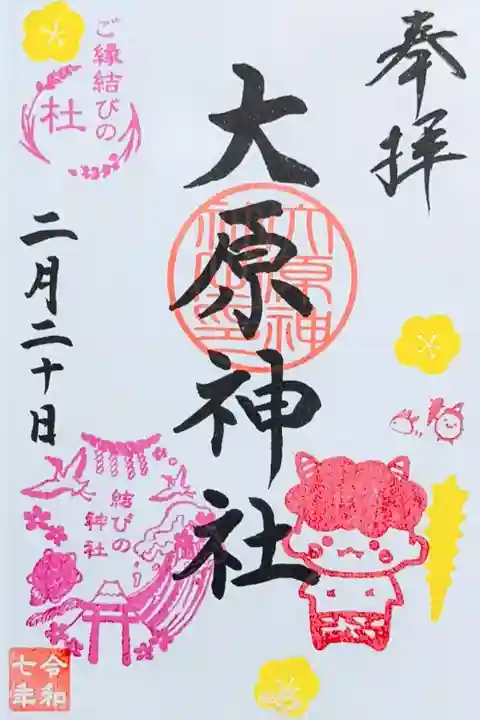 奉拝
大原神社
大原神
ご縁結びの
杜
二月二十日
結びの
神社
令和
七年